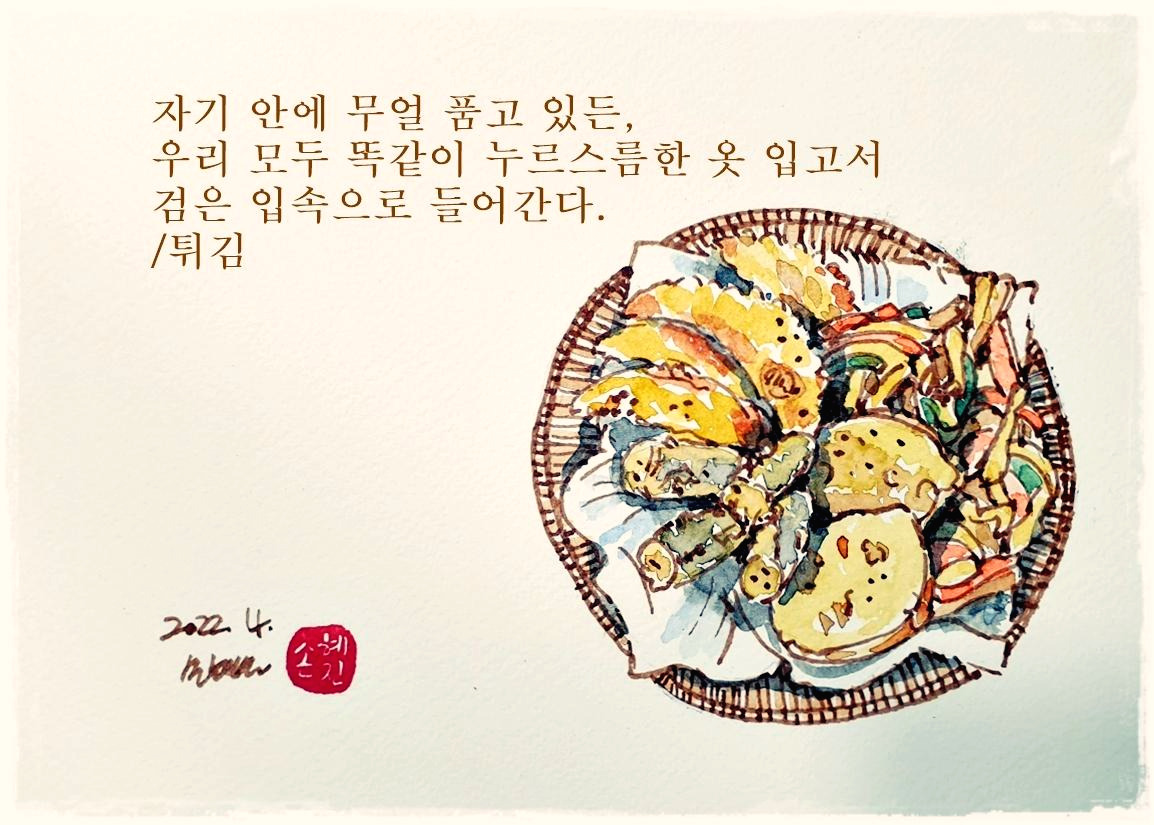 자기 안에 무얼 품고 있든,
우리 모두 똑같이 누르스름한 옷 입고서
검은 입속으로 들어간다.
/튀김
2022. 4.
손혜진